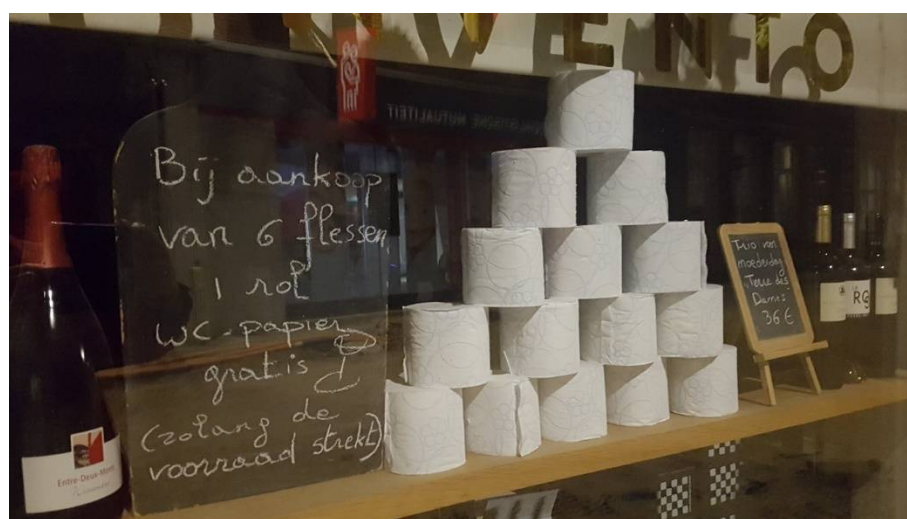 VENTO
inr
Bij aankoop
van 6 flessen
1 rol
wc-papier
gratis
(zolang de
voorraad strekt)
MUTUALITEIT
Trio van
moederdag
Terre des
Dames
36 €
RG
Entre-Deux-Monts